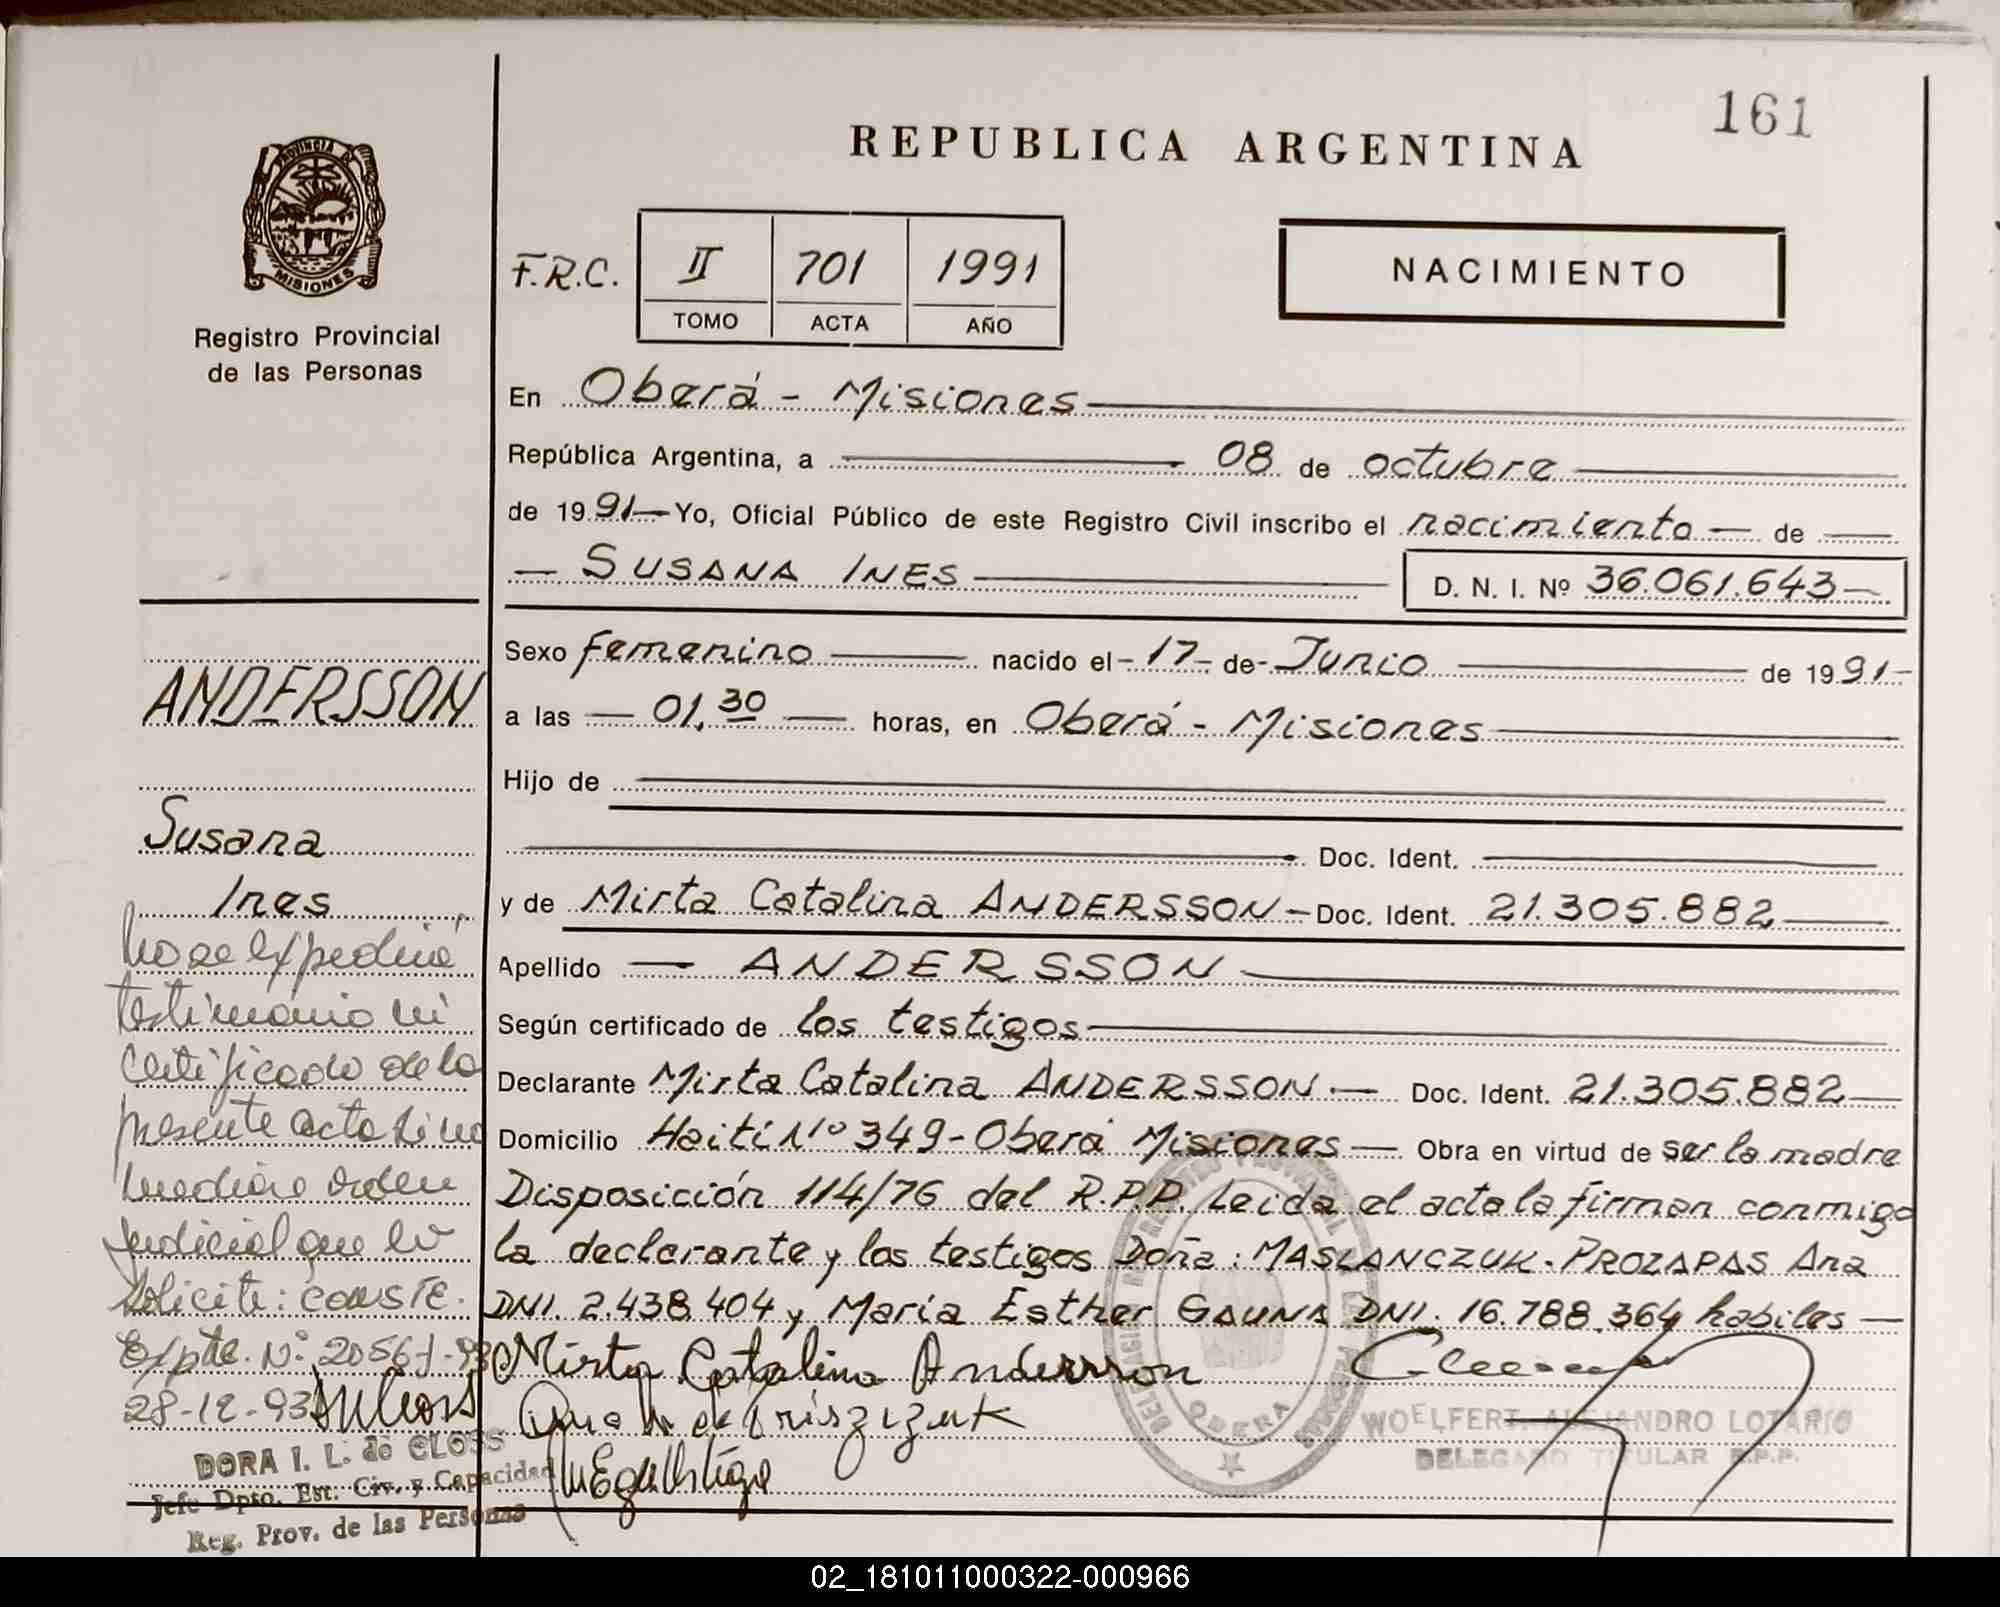 161
REPUBLICA ARGENTINA
PROVINCIA DE
MISIONES
Registro Provincial
de las Personas
F.R.C. II 701 1991
TOMO ACTA AÑO
NACIMIENTO
En Oberá - Misiones
República Argentina, a 08 de octubre
de 19 91 Yo, Oficial Público de este Registro Civil inscribo el nacimiento de
SUSANA INES D. N. I. Nº 36.061.643
Sexo femenino nacido el - 17 - de - Junio de 19 91 -
a las 01,30 horas, en Oberá - Misiones
Hijo de
Doc. Ident.
y de Mirta Catalina ANDERSSON - Doc. Ident. 21.305.882
Apellido ANDERSSON
Según certificado de los testigos
Declarante Mirta Catalina ANDERSSON Doc. Ident. 21.305.882
Domicilio Haití Nº 349 - Oberá Misiones Obra en virtud de ser la madre
Disposición 114/76 del R.P.P. Leida el acta la firman conmigo
la declarante y los testigos Doña: MASLANCZUK - PROZAPAS Ana
DNI. 2.438.404 y Maria Esther GAUNA DNI. 16.788.364 habiles
Mirta Catalina Andersson
WOELFERT, ALEJANDRO LOTARIO
DELEGADO TITULAR R.P.P.
OBERA
ANDERSSON
Susana
Ines
No se expedirá
testimonio ni
certificado de la
presente acta sino
mediare orden
judicial que lo
solicite: CONSTE.
Expte. Nº 2056
28-12-93
DORA I. L. de CLOSS
Jefe Dpto. Est. Civ. y Capacidad
Reg. Prov. de las Personas
02_181011000322-000966